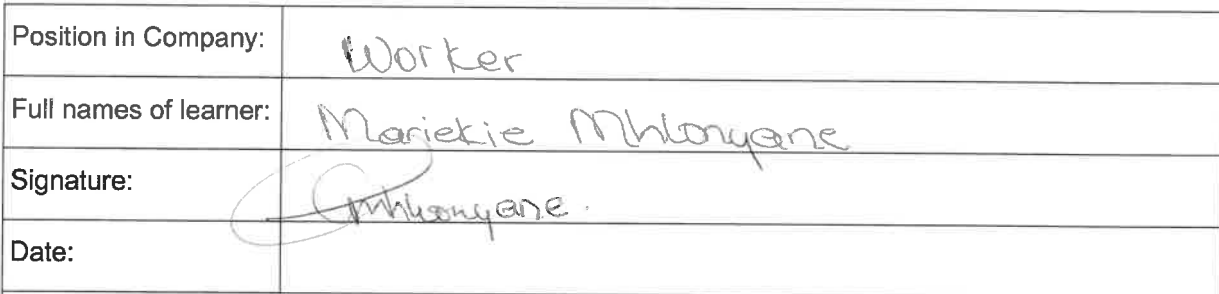 Position in Company: Worker
Full names of learner: Mariekie Mhlonyane
Signature: Mhlonyane.
Date: